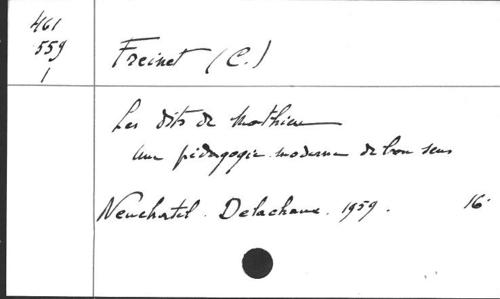 461
559
1
Freinet (C.)
Les dits de Mathieu
Une pédagogie moderne de bon sens
Neuchatel. Delachaux. 1959. 16°